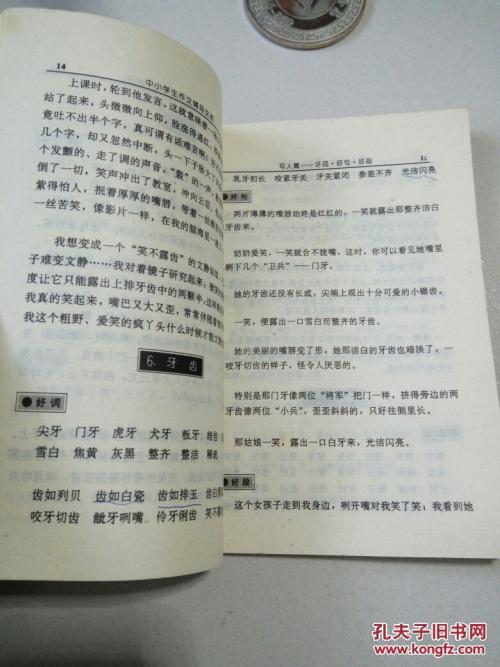 14
中小学生作文辅导之友
上课时，轮到他发言，这就意味着
站了起来，头微微向上仰，脸涨得通红，
竟吐不出半个字，真可谓有话难言啊！好
几个字，却又忽然中断，头一下子
个发颤的、走了调的声音，“轰”的一声，
倒了一切，笑声冲出了教室，冲向云
紫得怕人，抿着厚厚的嘴唇，带着
一丝苦笑，像影片一样，在我的脑海里
我想变成一个“笑不露齿”的文静姑
子难变文静……我对着镜子研究起来：微笑
度让它只能露出上排牙齿中的两颗
我真的笑起来，嘴巴又大又歪，常常伴随着
我这个粗野、爱笑的疯丫头什么时候才能文
6. 牙 齿
好调
尖牙 门牙 虎牙 犬牙 板牙
雪白 焦黄 灰黑 整齐 整洁
齿如列贝 齿如白瓷 齿如排玉 齿白
咬牙切齿 龇牙咧嘴 伶牙俐齿 笑不
写人篇——好词·好句·好段
乳牙初长 咬紧牙关 牙关紧闭 参差不齐 光洁闪亮
好句
两片薄薄的嘴唇始终是红红的，一笑就露出那整齐洁白
牙齿来。
奶奶爱笑，一笑就合不拢嘴，这时，你可以看见她嘴里
剩下几个“卫兵”——门牙。
她的牙齿还没有长成，尖端上现出十分可爱的小锯齿。
一笑，便露出一口雪白而整齐的牙齿。
她的美丽的嘴唇变了形，她那洁白的牙齿也暗淡了，一
咬牙切齿的样子，怪令人厌恶的。
特别是那门牙像两位“将军”把门一样，挤得旁边的两
牙齿像两位“小兵”，歪歪斜斜的，只好往侧里长。
那姑娘一笑，露出一口白牙来，光洁闪亮。
好段
这个女孩子走到我身边，咧开嘴对我笑了笑；我看到她
孔夫子旧书网
www.kongfz.com